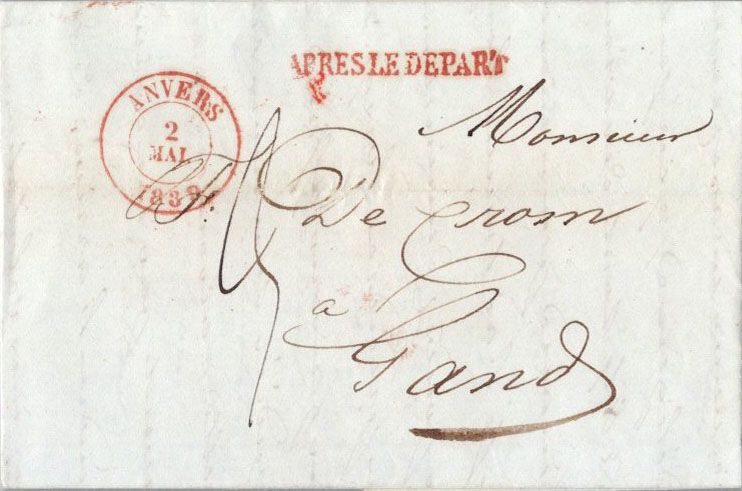 APRES LE DEPART
ANVERS
2
MAI
1839
Monsieur
Fr. De Crom
a
Gand